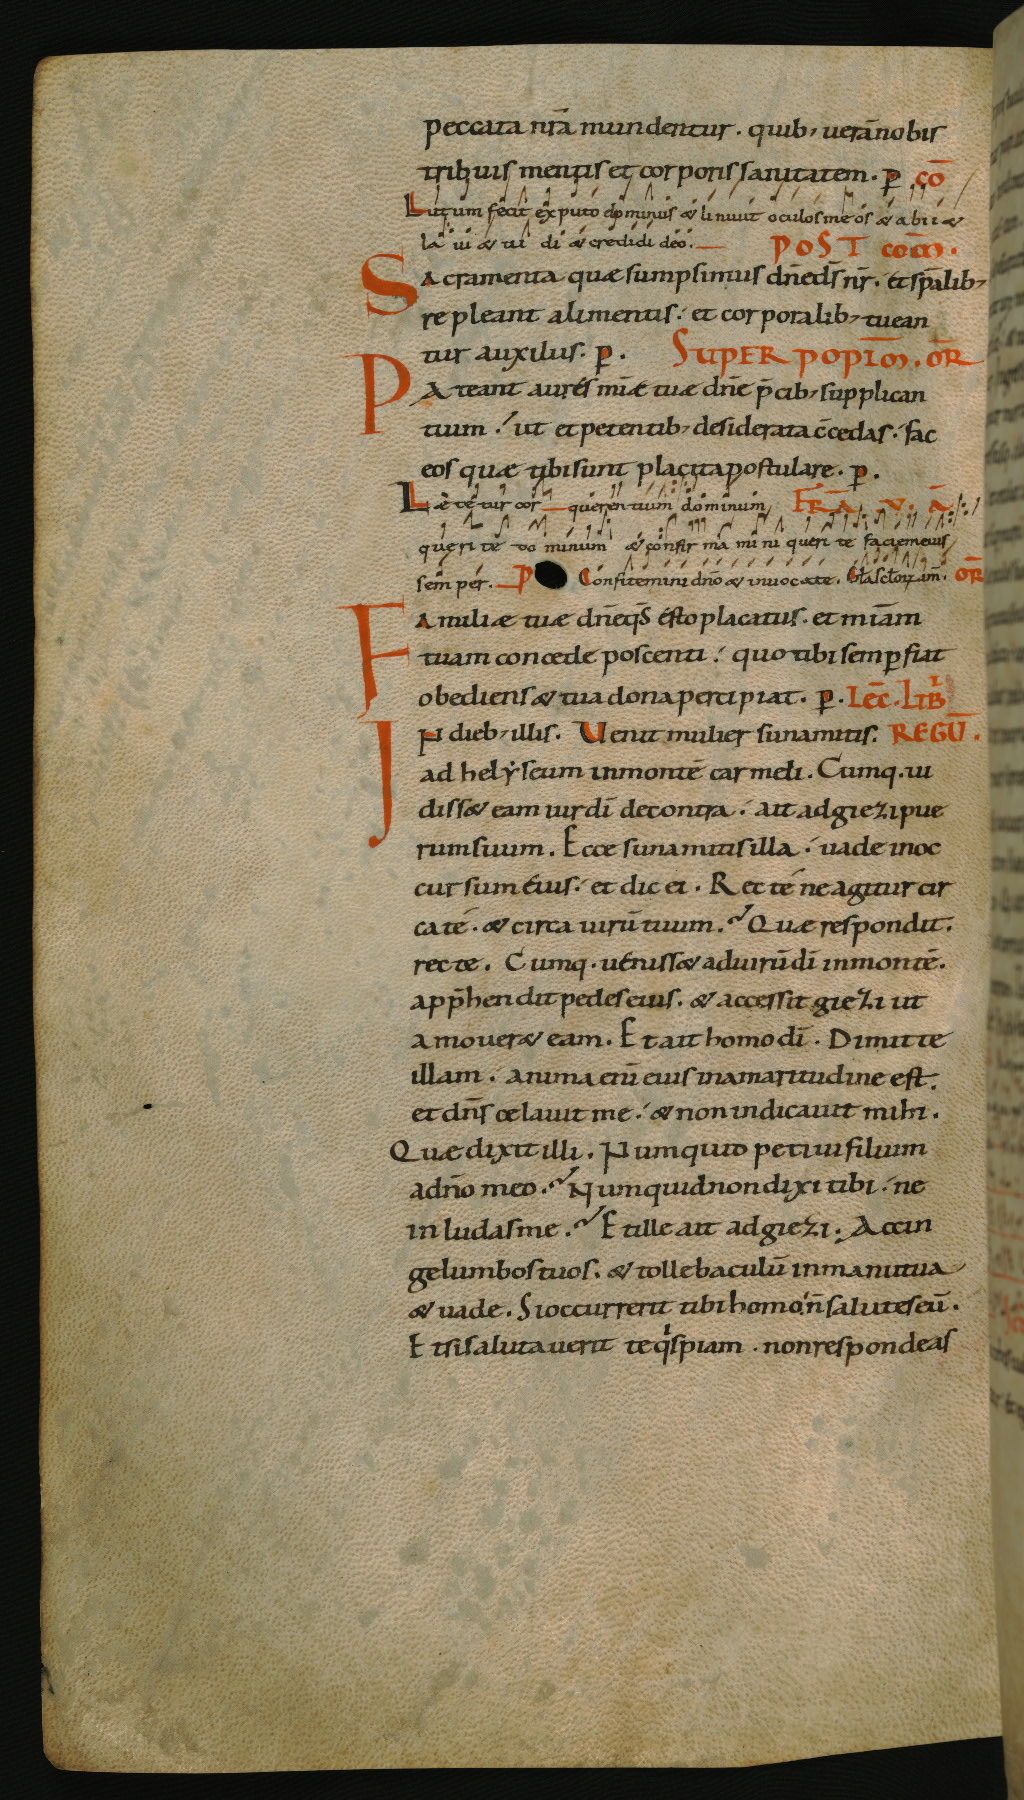 peccata nr̄a mundentur. quib; uerā nobis
tribuis mentis et corporis sanitatem. p̄ cō
Lutum fecit ex sputo dominus & liniuit oculos meos & abii &
laui & uidi & credidi deo. POST com̄.
Sacramenta quæ sumpsimus dn̄e ds̄ nr̄. et sp̄alib;
repleant alimentis. et corporalib; tuean
tur auxiliis. p̄. SUPER POPLm̄. OR̄
Pateant aures mīæ tuæ dn̄e p̄cib; supplican
tium. ut et petentib; desiderata c̄cedas. fac
eos quæ tibi sunt placita postulare. p̄.
Lætetur cor querentium dominum FR̄A V. Ā
querite dominum & confirmamini querite faciem eius
semper. P Confitemini dn̄o & inuocate. OR̄
Familiæ tuæ dn̄e qs̄ esto placatus. et miam̄
tuam concede poscenti. quo tibi semp̄ fiat
obediens & tua dona percipiat. p̄. Lec̄. LIB̄
IN dieb; illis. Uenit mulier sunamitis. REGŪ.
ad helẏseum in monte carmeli. Cumq. ui
diss& eam uir dī de contra. ait ad giezi pue
rum suum. Ecce sunamitis illa. uade in oc
cursum eius. et dic ei. Recte ne agitur cir
ca te. & circa uirū tuum. Quæ respondit.
recte. Cumq.ueniss& ad uirū dī in monte.
app̄hendit pedes eius. & accessit giezi ut
amouer& eam. Et ait homo dī. Dimitte
illam. anima enī eius in amaritudine est.
et dn̄s celauit me. & non indicauit mihi.
Quæ dixit illi. Numquid petiui filium
a dn̄o meo. Numquid non dixi tibi. ne
inludas me. Et ille ait ad giezi. Accin
ge lumbos tuos. & tolle baculū in manu tua
& uade. Si occurrerit tibi homo. n̄ salutes eū.
Et si salutauerit te qispiam. non respondeas